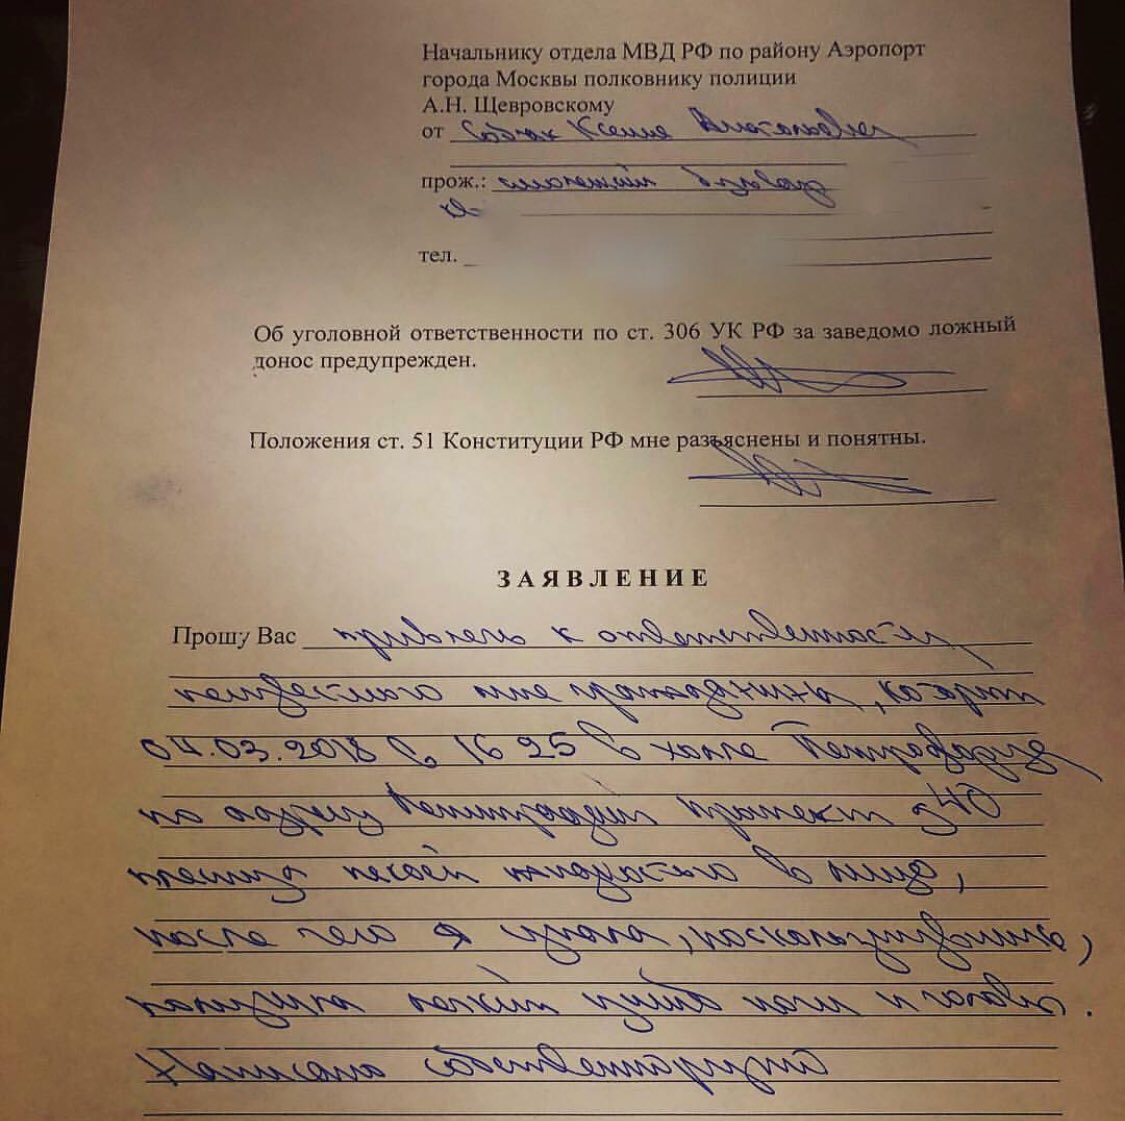 Начальнику отдела МВД РФ по району Аэропорт
города Москвы полковнику полиции
А.Н. Щевровскому
от Собчак Ксения Анатольевна
прож.: Смоленский бульвар
тел.
Об уголовной ответственности по ст. 306 УК РФ за заведомо ложный
донос предупрежден.
Положения ст. 51 Конституции РФ мне разъяснены и понятны.
ЗАЯВЛЕНИЕ
Прошу Вас привлечь к ответственности
неизвестного мне гражданина, который
04.03.2018 в 16 25 в холле
по адресу Ленинградский проспект д 40
некой жидкостью в лицо,
после чего я упала, поскользнувшись,
получила легкий ушиб ноги и головы.
Написано собственноручно